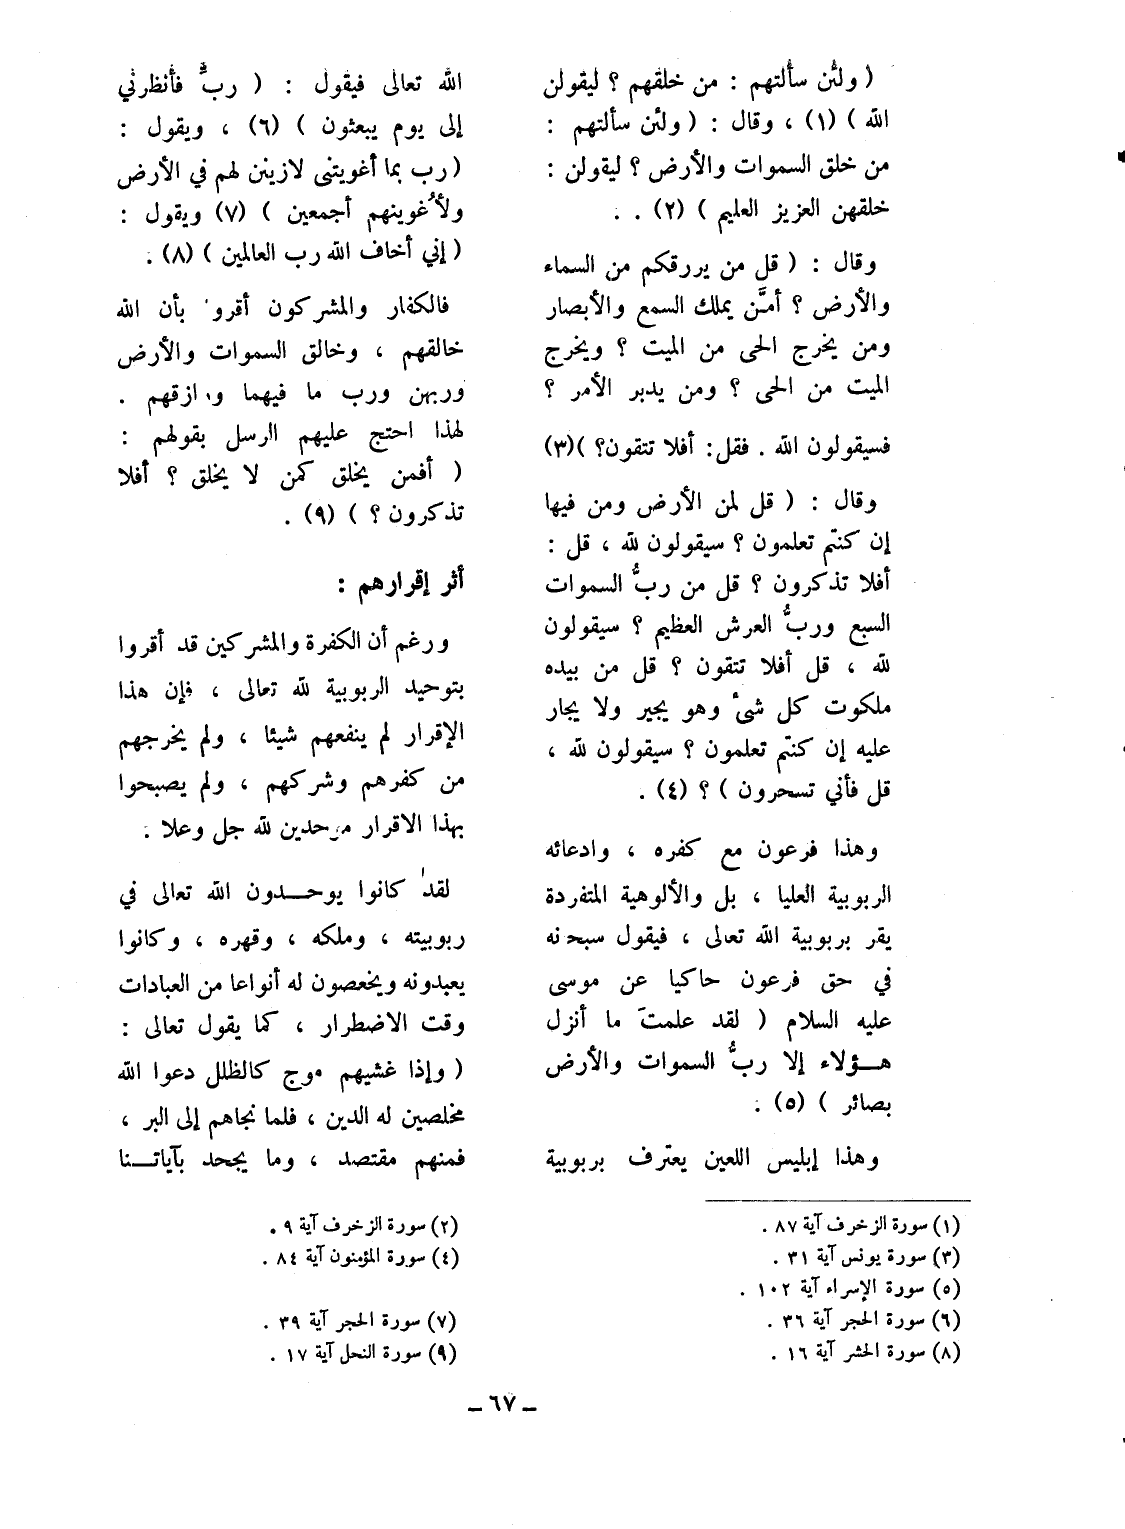 ( ولئن سألتهم : من خلقهم ؟ ليقولن
الله ) (١) ، وقال : ( ولئن سألتهم :
من خلق السموات والأرض ؟ ليقولن :
خلقهن العزيز العليم ) (٢) . .
وقال : ( قل من يررقكم من السماء
والأرض ؟ أمَّن يملك السمع والأبصار
ومن يخرج الحى من الميت ؟ ويخرج
الميت من الحى ؟ ومن يدبر الأمر ؟
فسيقولون الله . فقل: أفلا تتقون؟ )(٣)
وقال : ( قل لمن الأرض ومن فيها
إن كنتم تعلمون ؟ سيقولون لله ، قل :
أفلا تذكرون ؟ قل من ربُّ السموات
السبع وربُّ العرش العظيم ؟ سيقولون
لله ، قل أفلا تتقون ؟ قل من بيده
ملكوت كل شئ وهو يجير ولا يجار
عليه إن كنتم تعلمون ؟ سيقولون لله ،
قل فأني تسحرون ) ؟ (٤) .
وهذا فرعون مع كفره ، وادعائه
الربوبية العليا ، بل والألوهية المتفردة
يقر بربوبية الله تعالى ، فيقول سبحنه
في حق فرعون حاكيا عن موسى
عليه السلام ( لقد علمتَ ما أنزل
هـــؤلاء إلا ربُّ السموات والأرض
بصائر ) (٥) .
وهذا إبليس اللعين يعترف بربوبية
الله تعالى فيقول : ( ربِّ فأنظرني
إلى يوم يبعثون ) (٦) ، ويقول :
( رب بما أغويتنى لازينن لهم في الأرض
ولأُغوينهم أجمعين ) (٧) ويقول :
( إني أخاف الله رب العالمين ) (٨) .
فالكفار والمشركون أقرو' بأن الله
خالقهم ، وخالق السموات والأرض
وربهن ورب ما فيهما و ازقهم .
لهذا احتج عليهم الرسل بقولهم :
( أفمن يخلق كمن لا يخلق ؟ أفلا
تذكرون ؟ ) (٩) .
أثر إقرارهم :
ورغم أن الكفرة والمشركين قد أقروا
بتوحيد الربوبية لله تعالى ، فإن هذا
الإقرار لم ينفعهم شيئا ، ولم يخرجهم
من كفرهم وشركهم ، ولم يصبحوا
بهذا الاقرار موحدين لله جل وعلا .
لقد كانوا يوحـــدون الله تعالى في
ربوبيته ، وملكه ، وقهره ، وكانوا
يعبدونه ويخعصون له أنواعا من العبادات
وقت الاضطرار ، كما يقول تعالى :
( وإذا غشيهم موج كالظلل دعوا الله
مخلصين له الدين ، فلما نجاهم إلى البر ،
فمنهم مقتصد ، وما يجحد بآياتـــنا
(١) سورة الزخرف آية ٨٧ .
(٢) سورة الزخرف آية ٩ .
(٣) سورة يونس آية ٣١ .
(٤) سورة المؤمنون آية ٨٤ .
(٥) سورة الإسراء آية ١٠٢ .
(٦) سورة الحجر آية ٣٦ .
(٧) سورة الحجر آية ٣٩ .
(٨) سورة الحشر آية ١٦ .
(٩) سورة النحل آية ١٧ .
ــ ٦٧ ــ